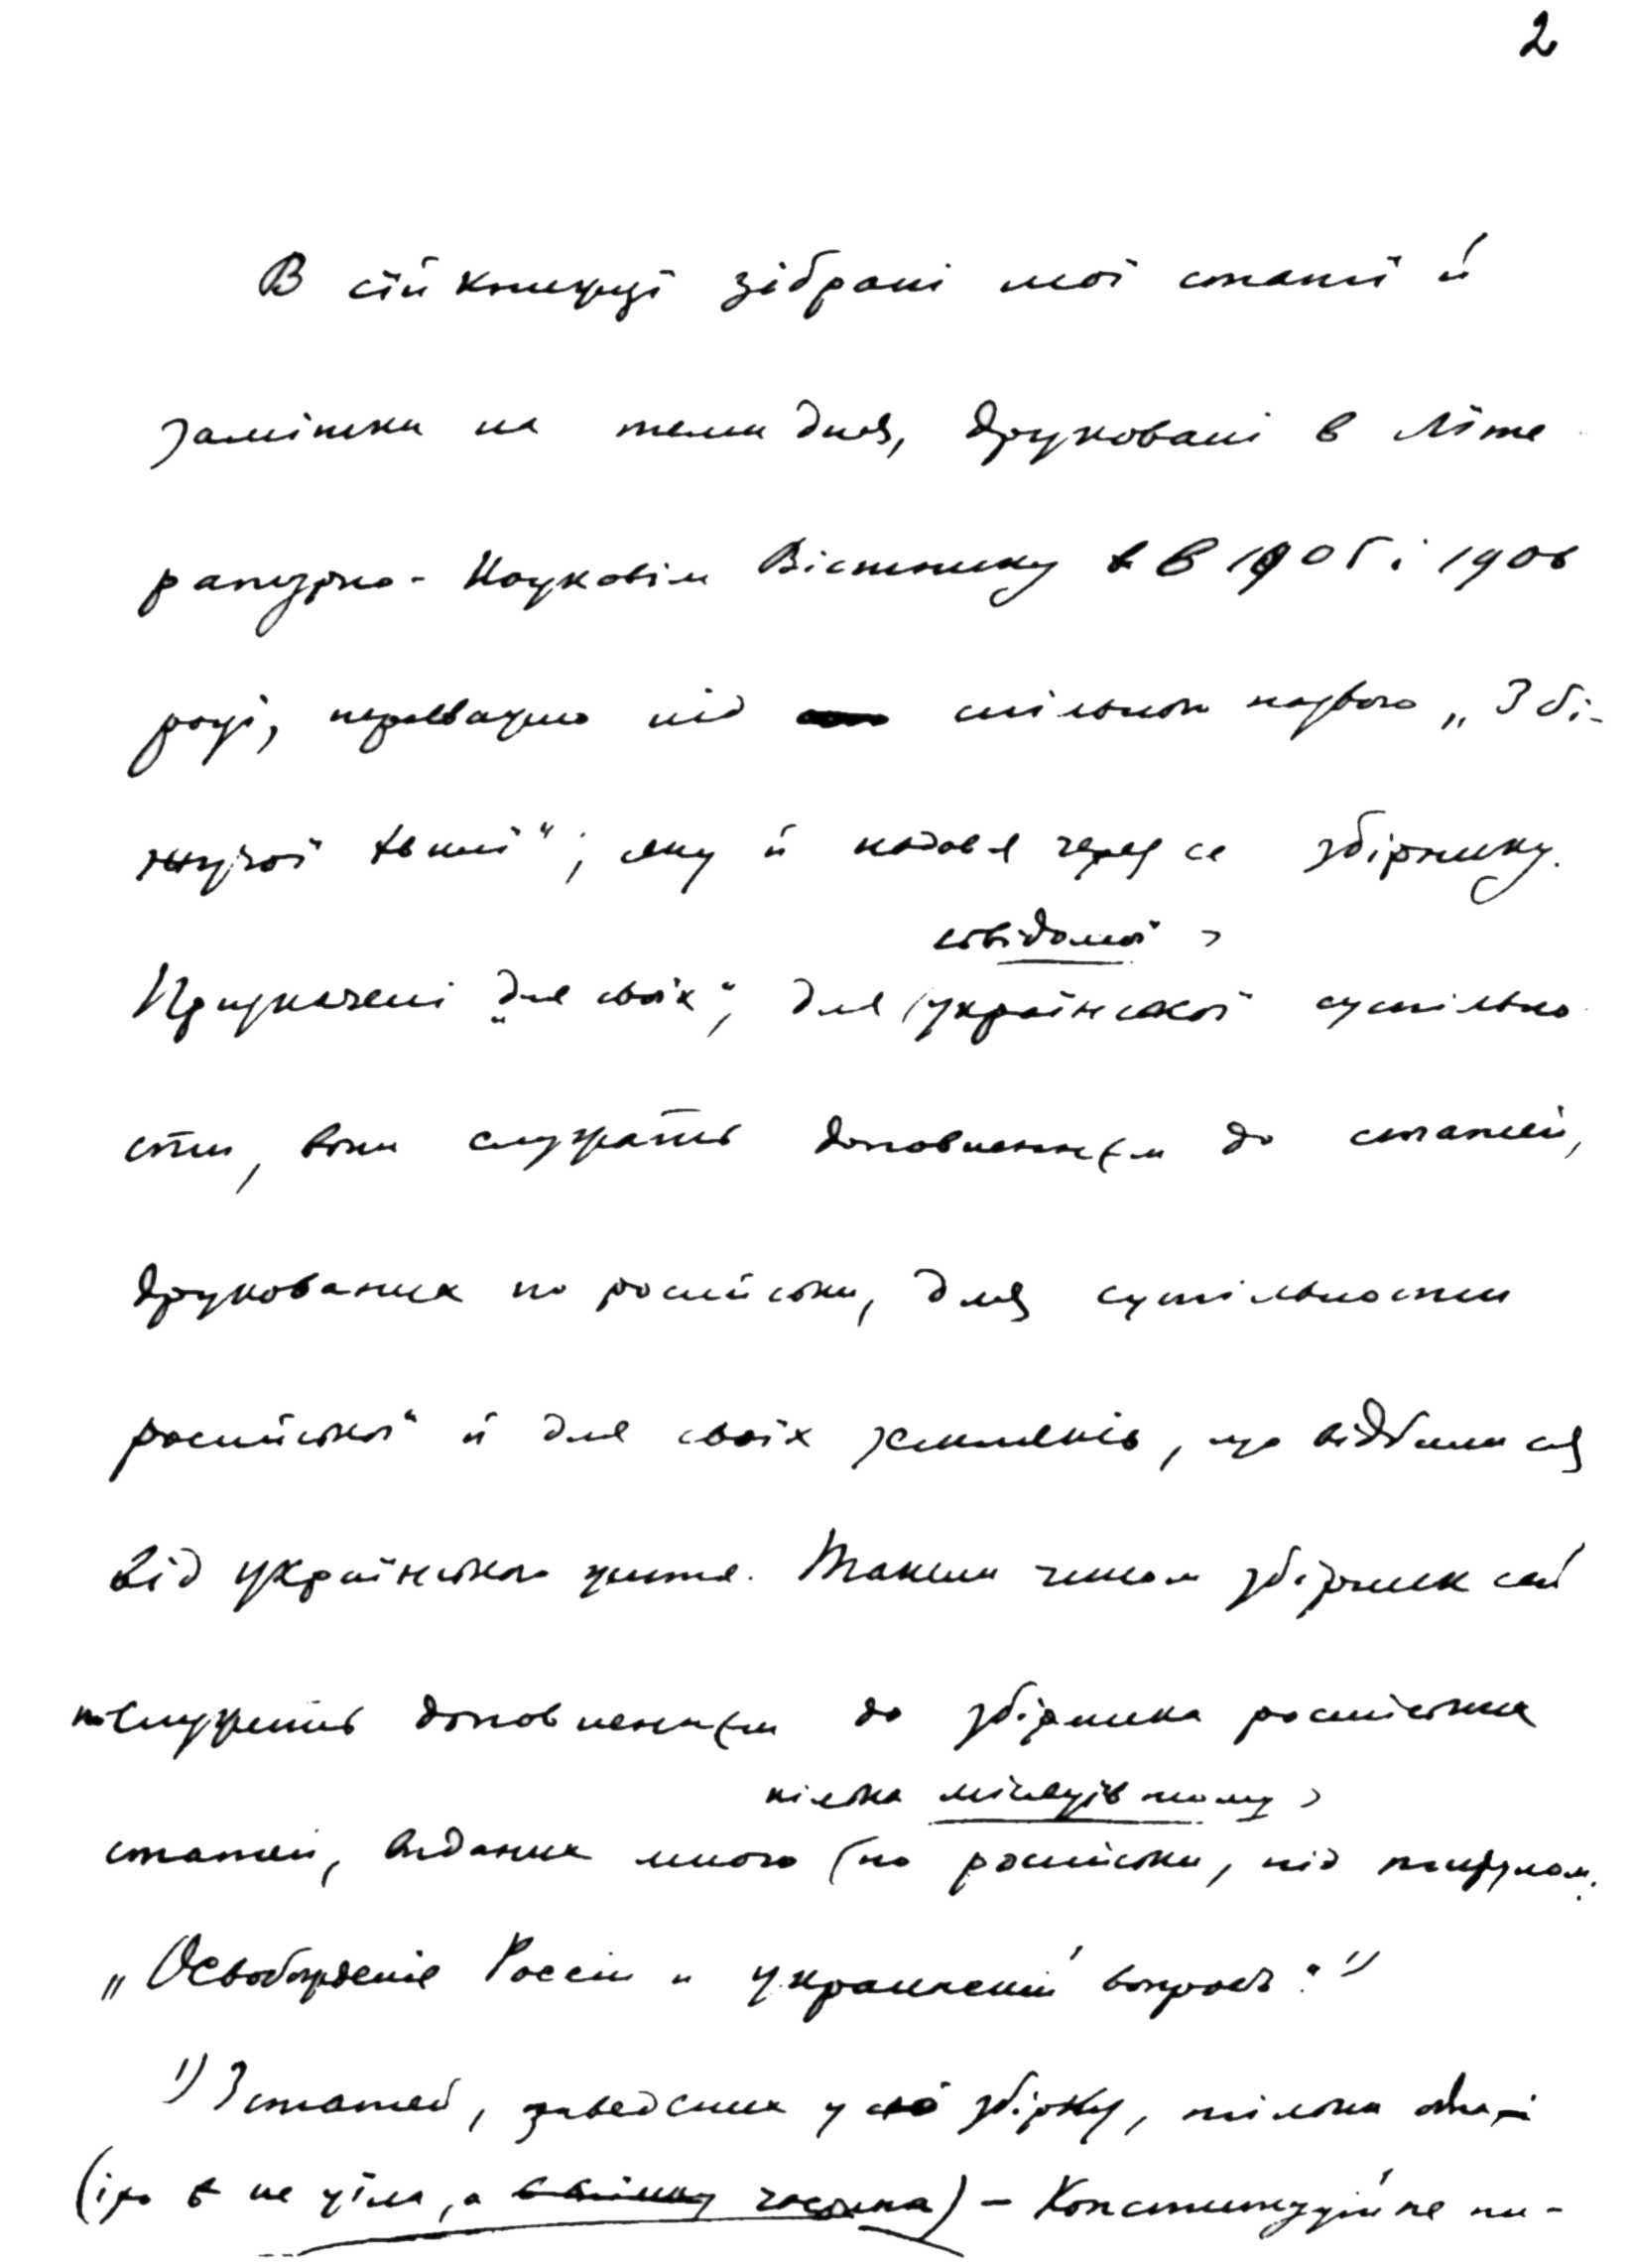 2
В сїй книжцї зібрані мої статї й
замітки на теми дня, друковані в Літе
ратурно-Науковім Вістнику в 1905 і 1906
роцї, переважно під спільною назвою „З бі-
жучої хвилї“, яку й надав я через се збірнику.
свідомої
Призначені „для своїх“, для української суспільно
сти, вони служать доповненнєм до статей,
друкованих по росийськи, для суспільности
росийської й для своїх земляків, що відбили ся
від українського життя. Таким чином збірник сей
послужить доповненнєм до збірника росийських
кілька місяцїв тому
статей, виданих мною (по росийськи, під титулом
„Освобожденіе Россіи и украинскій вопросъ“ 1)
1) З статей, заведених у сю збірку, тільки одна
(і то не цїла, а частина) – Конституційне пи-